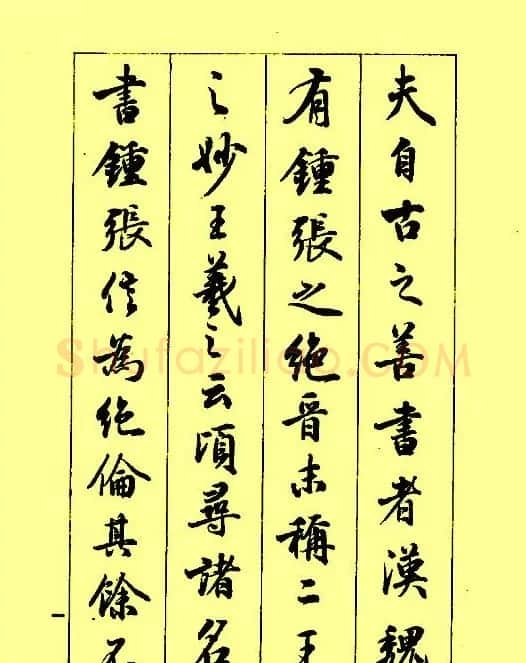 夫自古之善書者漢魏
有鍾張之絕晉末稱二王
之妙王羲之云頃尋諸名
書鍾張信為絕倫其餘不
Shufaziliao.COM